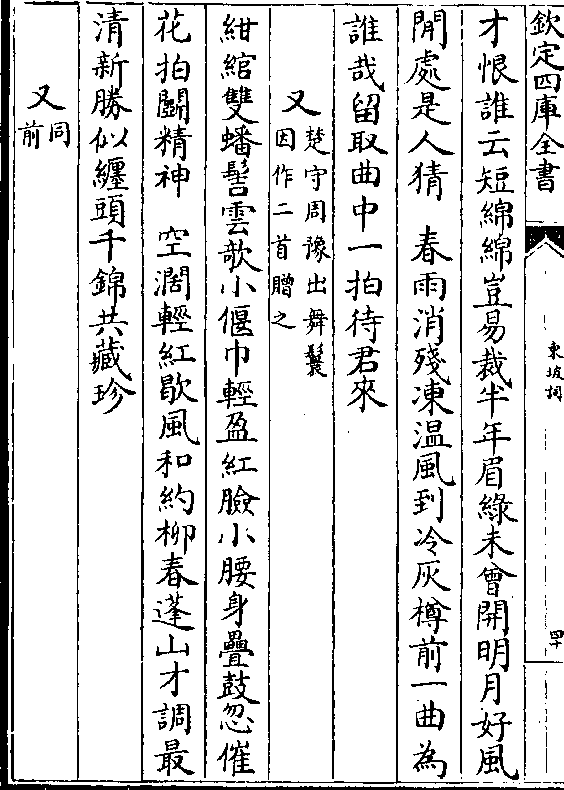 欽定四庫全書
東坡詞
四十
才恨誰云短綿綿豈易裁半年眉綠未曾開明月好風
閒處是人猜　春雨消殘凍温風到冷灰樽前一曲為
誰哉留取曲中一拍待君來
又楚守周豫出舞鬟
因作二首贈之
紺綰雙蟠髻雲欹小偃巾輕盈紅臉小腰身疊鼓忽催
花拍鬭精神　空濶輕紅歇風和約柳春蓬山才調最
清新勝似纏頭千錦共藏珍
又同
前